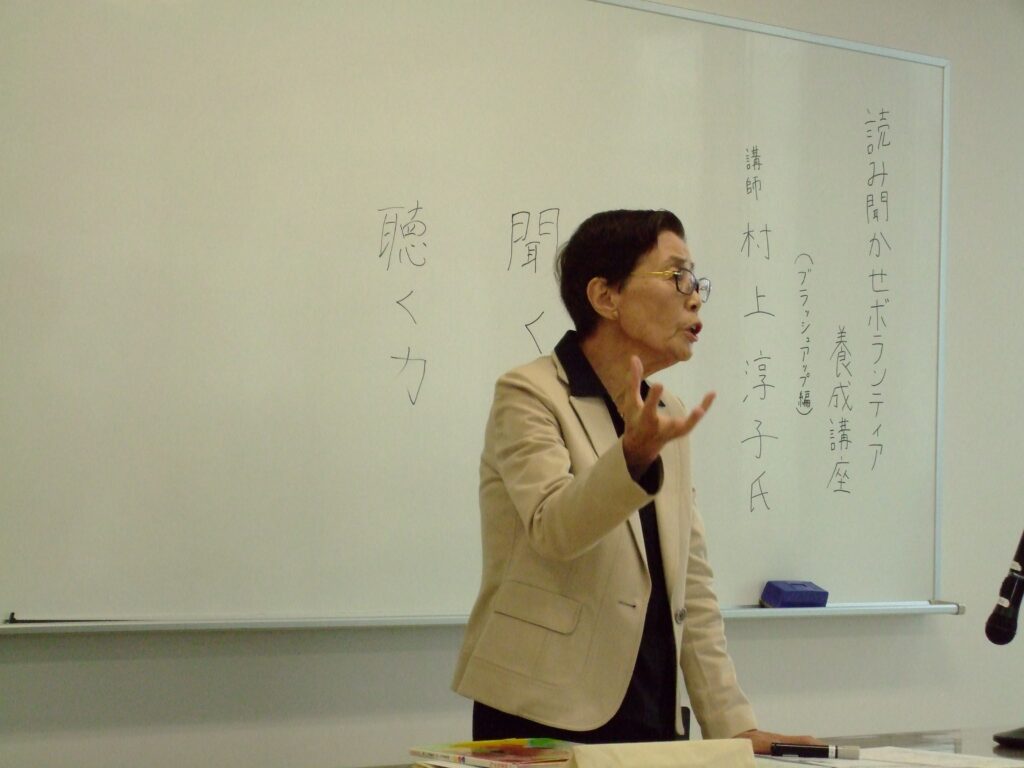 読み聞かせボランティア
養成講座
(ブラッシュアップ編)
講師 村上淳子氏
聞く
聴く力